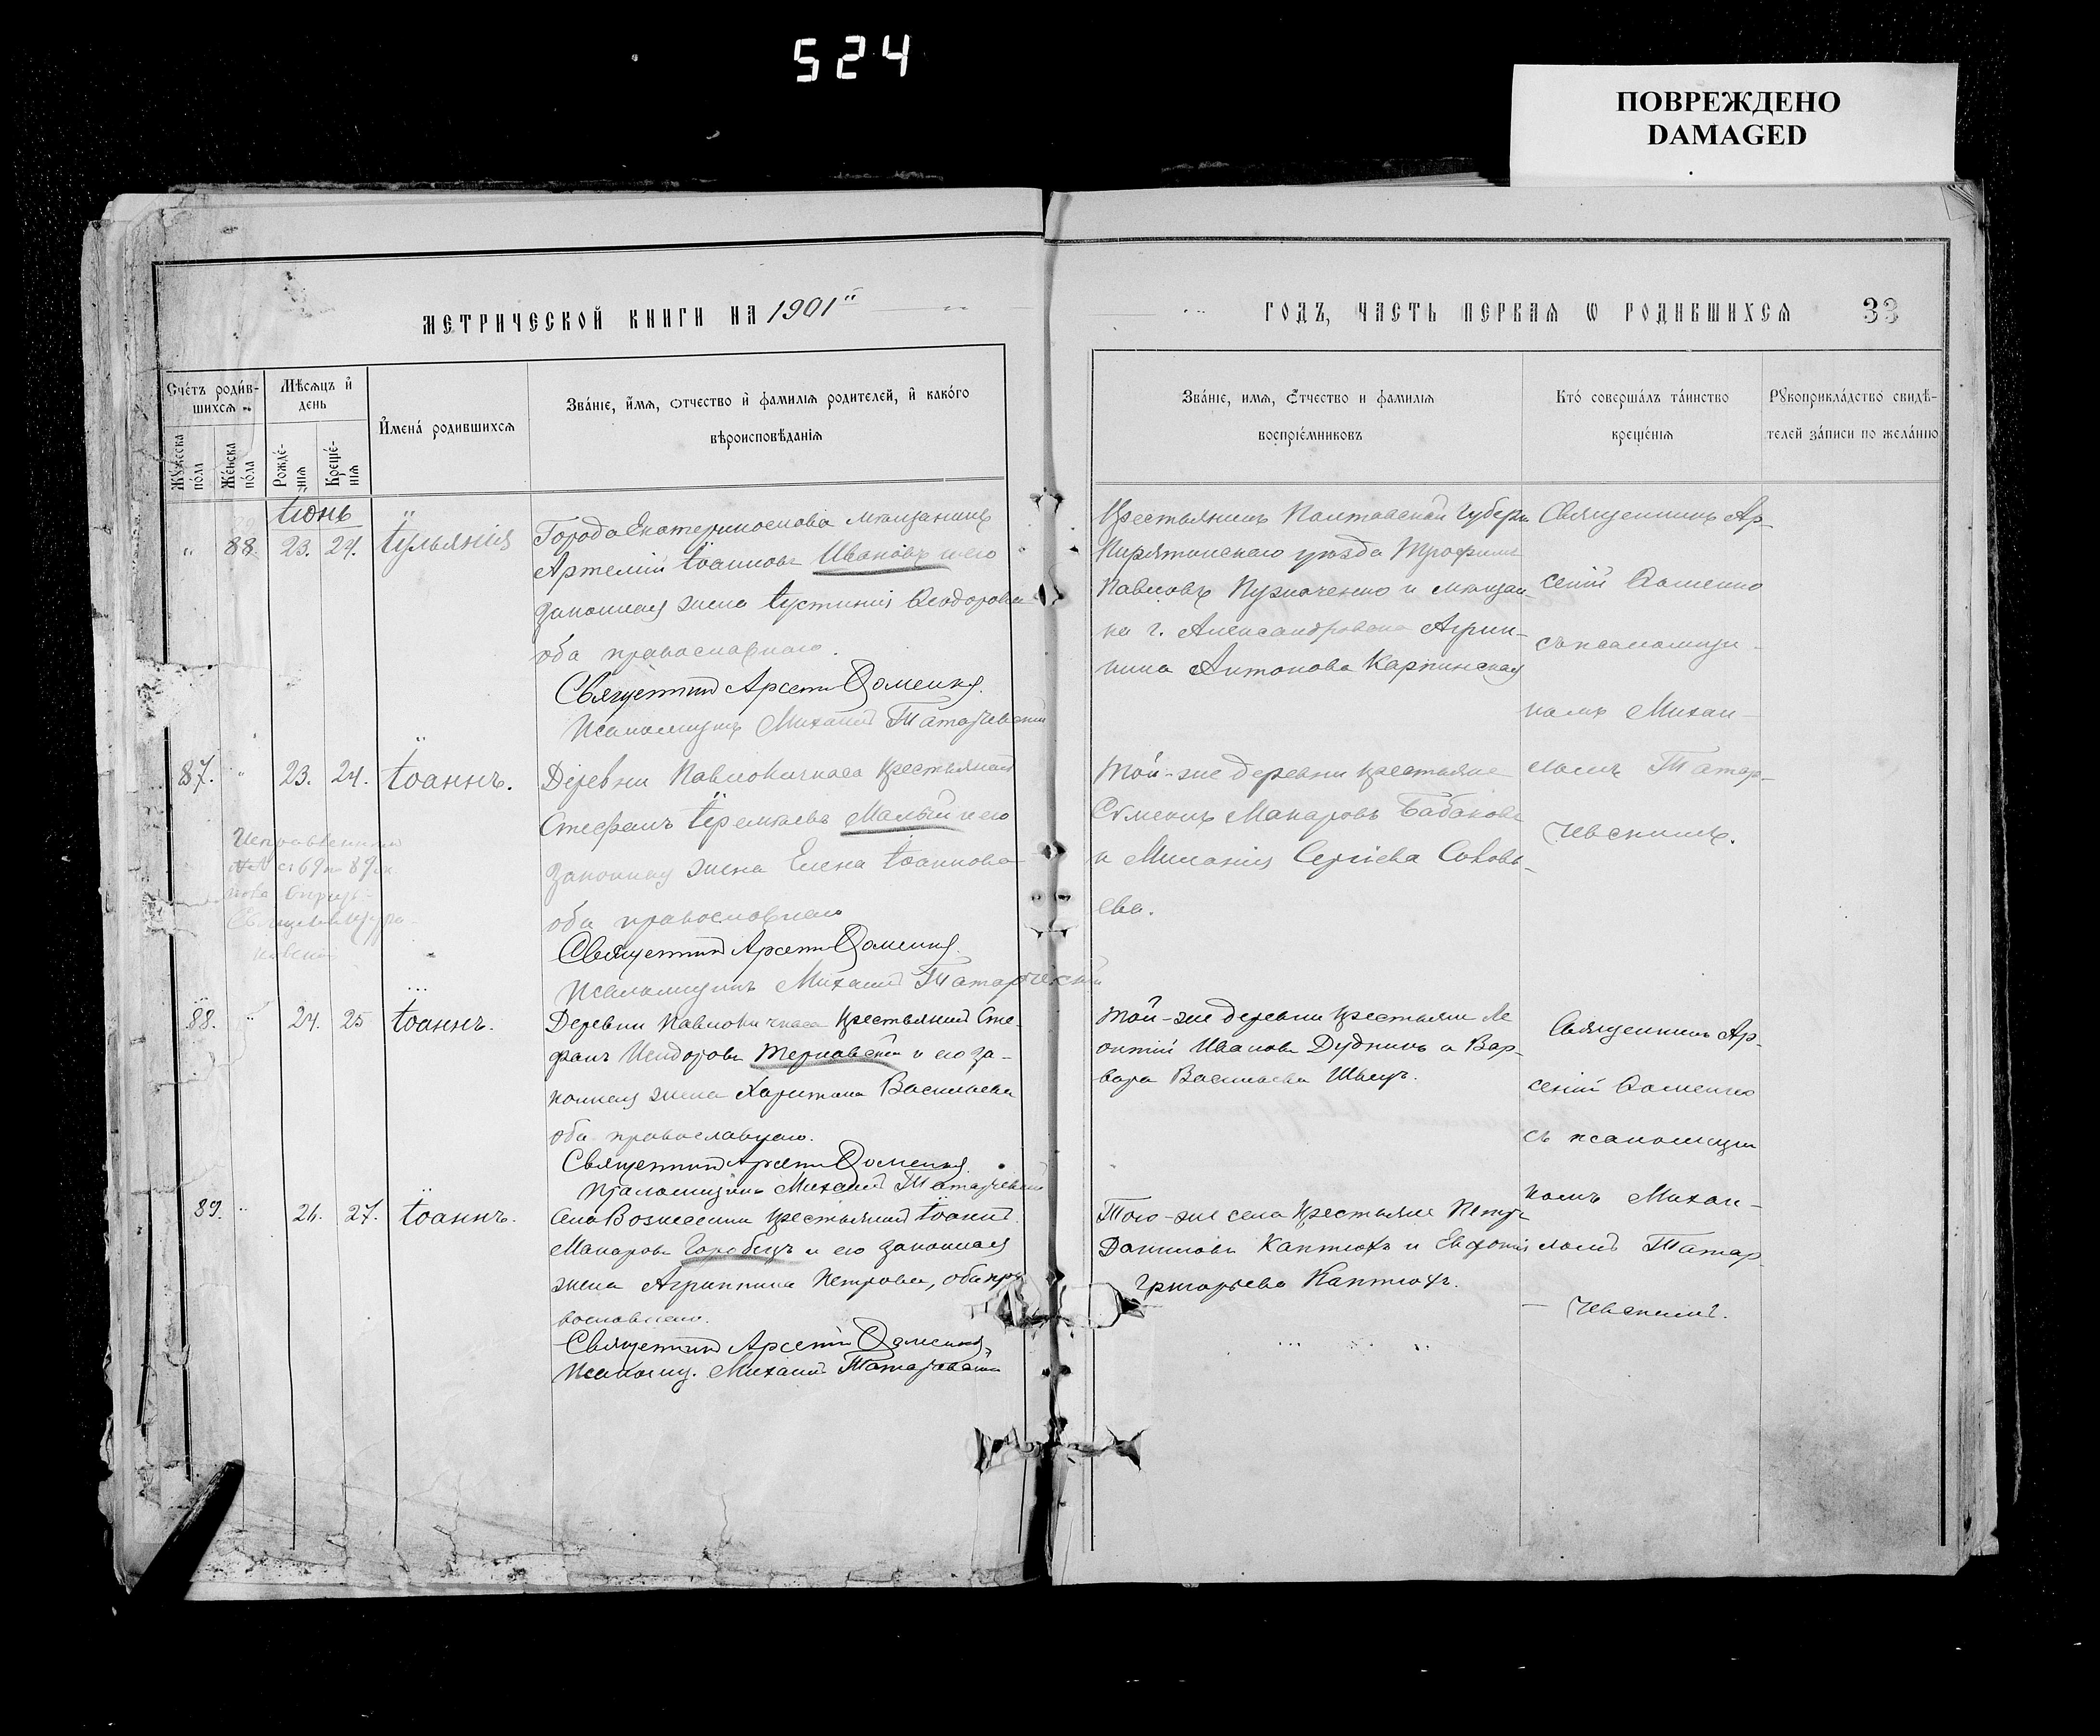 524
ПОВРЕЖДЕНО
DAMAGED
МЕТРИЧЕСКОЙ КНИГИ НА 1901
ГОДЪ, ЧАСТЬ ПЕРВАЯ Ѡ РОДИВШИХСЯ 33
Счетъ родив-
шихся
Мужеска пола
Женска пола
Мѣсяцъ и
день
Рожде-
нія
Креще-
нія
Имена родившихся
Званіе, имя, отчество и фамилія родителей, и какого
вѣроисповѣданія
Званіе, имя, отчество и фамилія
воспріемниковъ
Кто совершалъ таинство
крещенія
Рукоприкладство свидѣ-
телей записи по желанію
Іюнь
88. 23. 24. Іульянія
Города Екатеринослава мѣщанинъ
Артемій Іоанновъ Ивановъ и его
законная жена Іустинія Ѳеодорова
оба православнаго.
Священник Арсеній Ѳоменко.
Псаломщикъ Михаилъ Татарчевскій
Крестьянинъ Полтавской Губерн.
Пирятинскаго уѣзда Трофимъ
Павловъ Пузноченко и мѣщан-
ка г. Александровска Агрип-
пина Антонова Карпинская
Священникъ Ар-
сеній Ѳоменко
съ псаломщи-
комъ Михаи-
ломъ Татар-
чевскимъ.
87. 23. 24. Іоаннъ.
Деревни Павлокичкаса крестьянинъ
Стефанъ Іеремѣевъ Малый и его
законная жена Елена Іоаннова
оба православнаго
Священник Арсеній Ѳоменко.
Псаломщикъ Михаилъ Татарчевскій
Той-же деревни крестьяне
Сѵмеонъ Макаровъ Бабаковъ
и Миланія Сергіева Соловь-
ева.
88. 24. 25 Іоаннъ.
Деревни Павлокичкаса крестьянинъ Сте-
фанъ Исидоровъ Терновскій и его за-
конная жена Харитина Васильева
оба православнаго.
Священник Арсеній Ѳоменко.
Псаломщикъ Михаилъ Татарчевскій
Той-же деревни крестьяне Ле
онтій Ивановъ Дудникъ и Вар-
вара Васильева Швецъ.
Священникъ Ар-
сеній Ѳоменко
съ псаломщи
комъ Михаи-
ломъ Татар
чевскимъ.
89. 26. 27. Іоаннъ.
Села Вознесенки крестьянинъ Іоаннъ
Макаровъ Горобецъ и его законная
жена Агриппина Петрова, оба пра
вославнаго.
Священник Арсеній Ѳоменко,
Псаломщ. Михаилъ Татарчевскій
Того-же села крестьяне Петръ
Даниловъ Каптюхъ и Евфимія
Григорьева Каптюхъ.